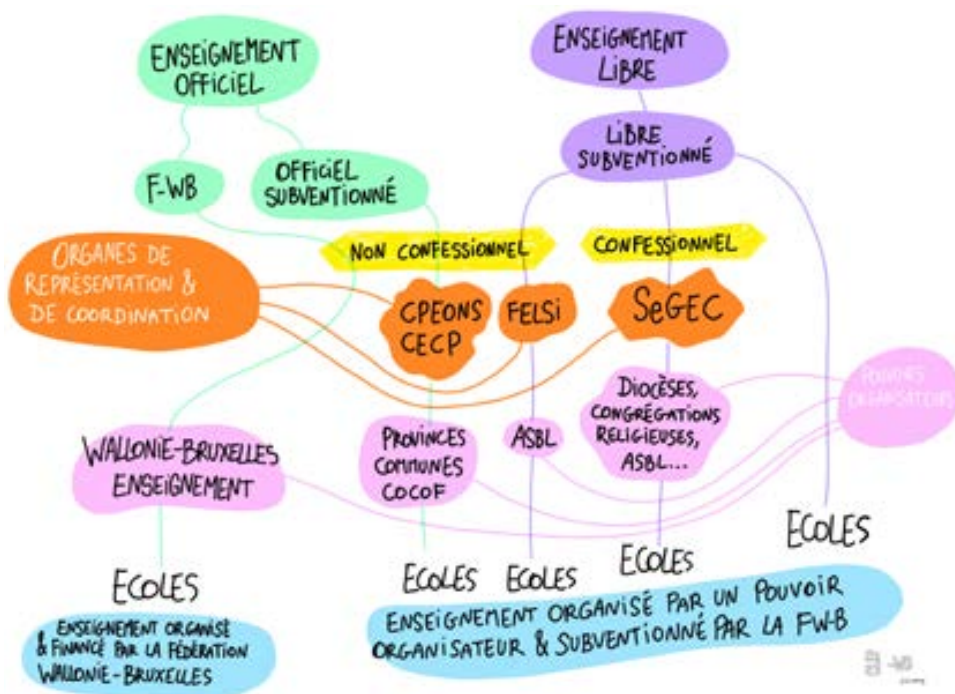 ENSEIGNEMENT
OFFICIEL
ENSEIGNEMENT
LIBRE
F-WB
OFFICIEL
SUBVENTIONNÉ
LIBRE
SUBVENTIONNÉ
NON CONFESSIONNEL
CONFESSIONNEL
ORGANES DE
REPRÉSENTATION &
DE COORDINATION
CPEONS
CECP
FELSi
SeGEC
POUVOIRS
ORGANISATEURS
WALLONIE-BRUXELLES
ENSEIGNEMENT
PROVINCES
COMMUNES
COCOF
ASBL
DIOCÈSES,
CONGRÉGATIONS
RELIGIEUSES,
ASBL...
ECOLES
ECOLES
ECOLES
ECOLES
ECOLES
ENSEIGNEMENT ORGANISÉ
& FINANCÉ PAR LA FÉDÉRATION
WALLONIE-BRUXELLES
ENSEIGNEMENT ORGANISÉ PAR UN POUVOIR
ORGANISATEUR & SUBVENTIONNÉ PAR LA FW-B